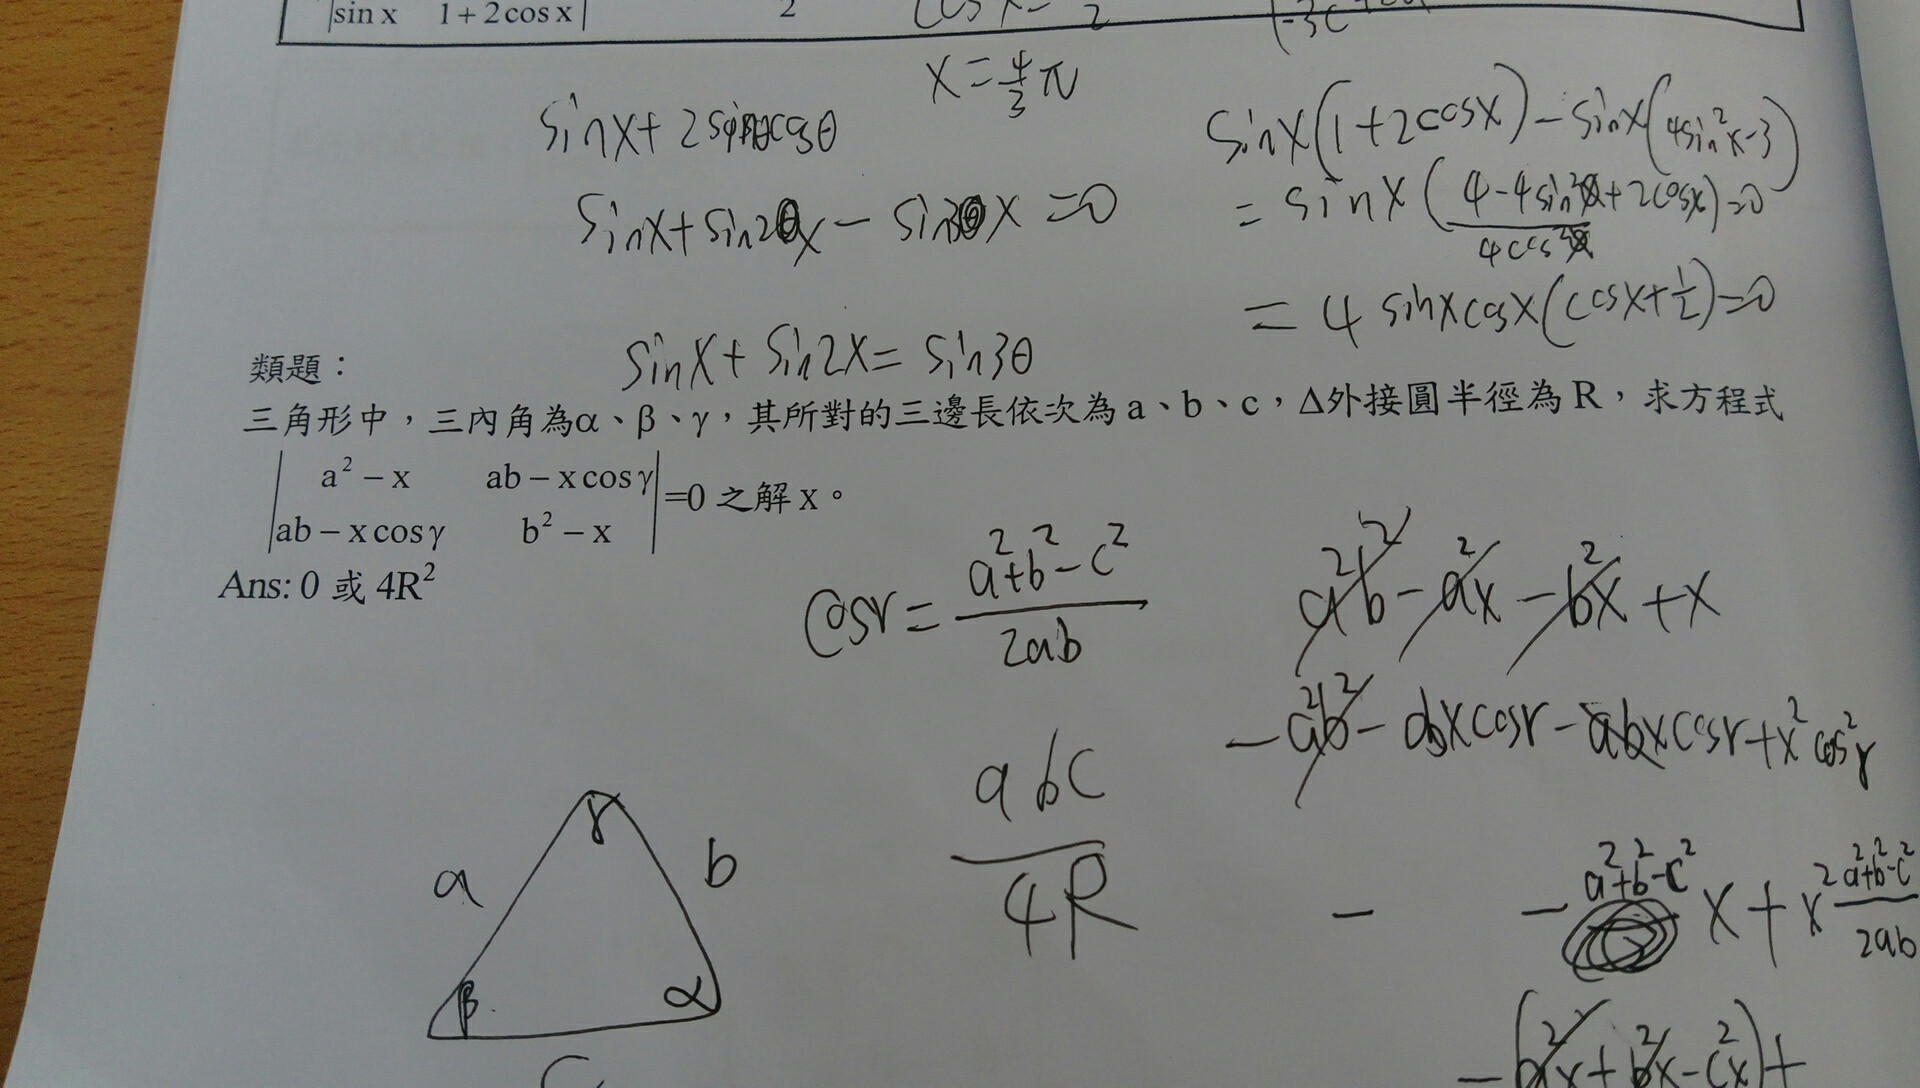 sin x 1 + 2 cos x 2
x = 4/3 π
sinx + 2 sinθcosθ
sinx(1+2cosx) - sinx(4sin²x-3)
sinx + sin2x - sin3x = 0
= sinx(4-4sin²x+2cosx)=0
4cos²x
= 4 sinx cosx(cosx+1/2)=0
sinx + sin2x = sin3θ
類題：
三角形中，三內角為α、β、γ，其所對的三邊長依次為 a、b、c，Δ外接圓半徑為 R，求方程式
a² − x ab − x cos γ
=0 之解 x。
ab − x cos γ b² − x
Ans: 0 或 4R²
cosr = (a²+b²-c²)/2ab
a²b² - a²x - b²x + x
- a²b² - abxcosr - abxcosr + x²cos²γ
abc/4R
- - a²+b²-c² x + x² (a²+b²-c²)/2ab
γ
a b
β α
c
-(a²x + b²x - c²x) +